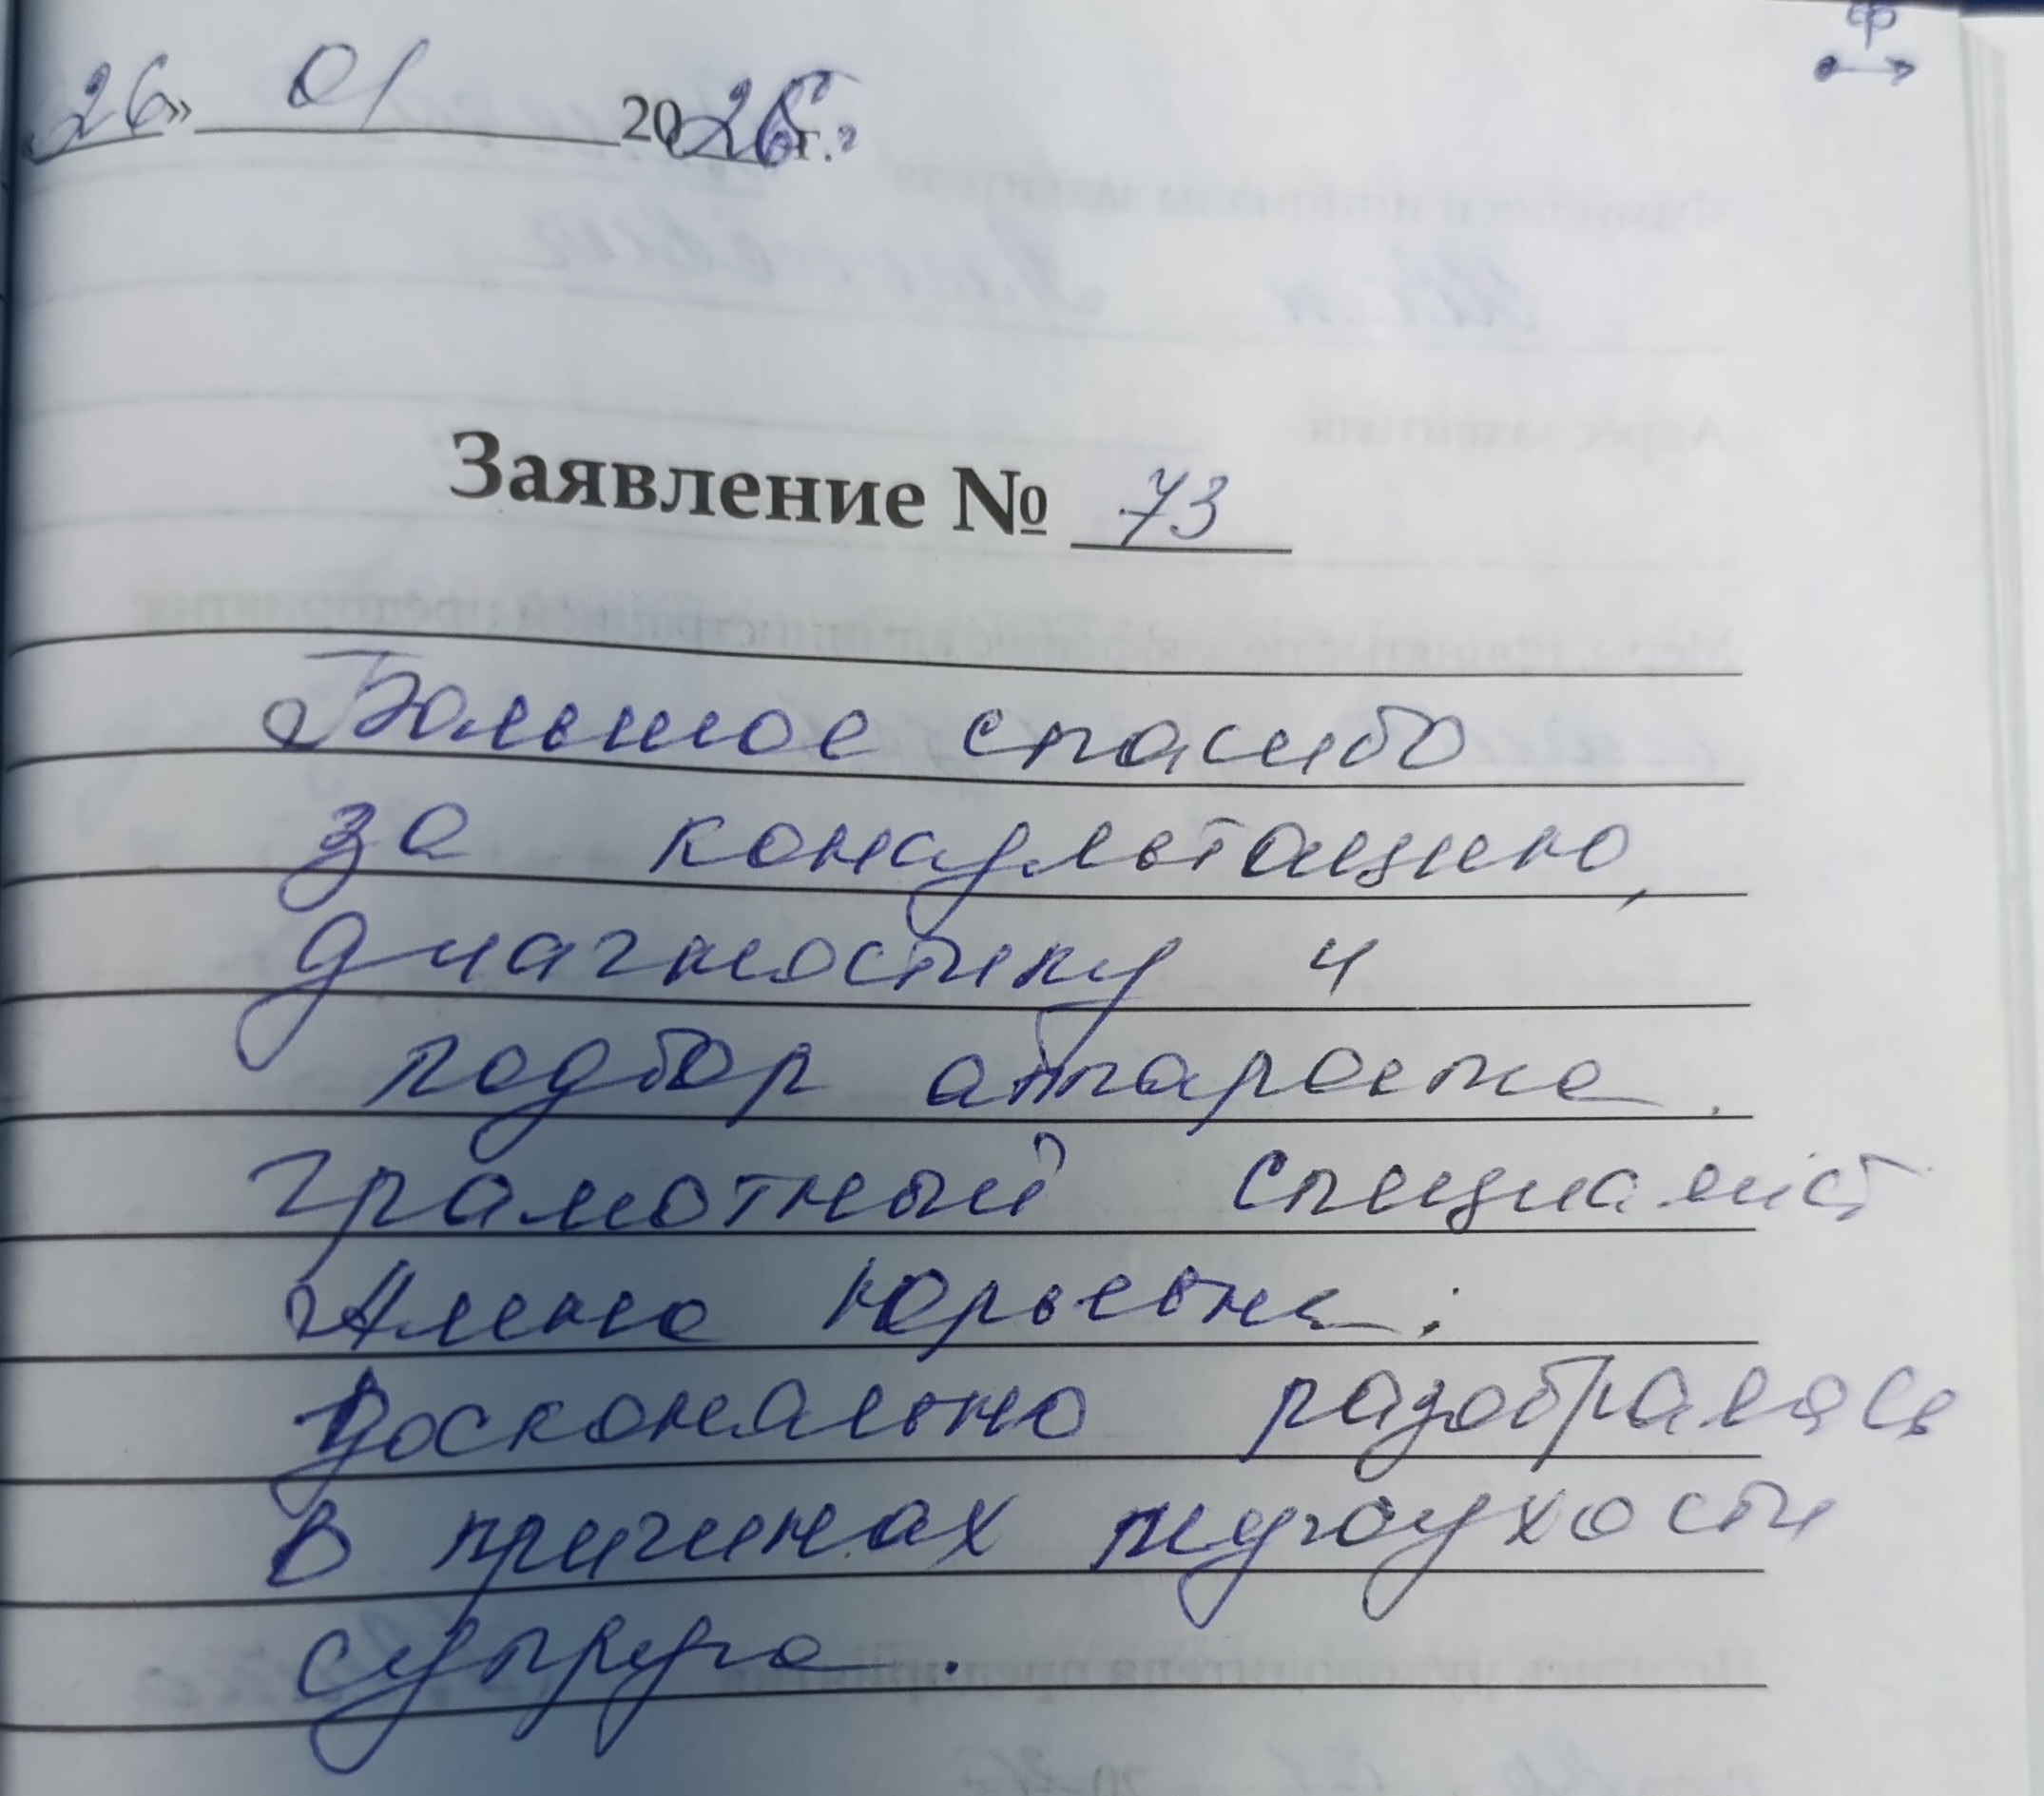 26» 01 2026 г.
Заявление № 73
Большое спасибо
за консультацию,
диагностику и
подбор аппарата.
грамотный специалист
Алена Юрьевна;
Досконально разобралась
в причинах тугоухости
супруга.